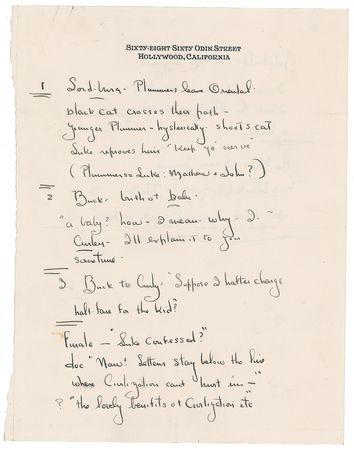 SIXTY-EIGHT SIXTY ODIN STREET
HOLLYWOOD, CALIFORNIA
1 Lordsburg - Plummers leave Oriental.
black cat crosses their path -
younger Plummer - hysterically shoots cat
Luke reproves him "Keep yo' nerve"
(Plummers = Luke: Matthew + John?)
2 Buck - birth of babe.
"a baby? how - I mean - why - I -
Curley - I'll explain it to you
sometime -
3. Buck to Curly - "Suppose I hafter charge
half-fare for the kid?"
Finale - "Luke confessed?"
doc "Naw!
stay below the
where Civilization cant hurt 'im -"
? "the lovely benifits of Civilization etc